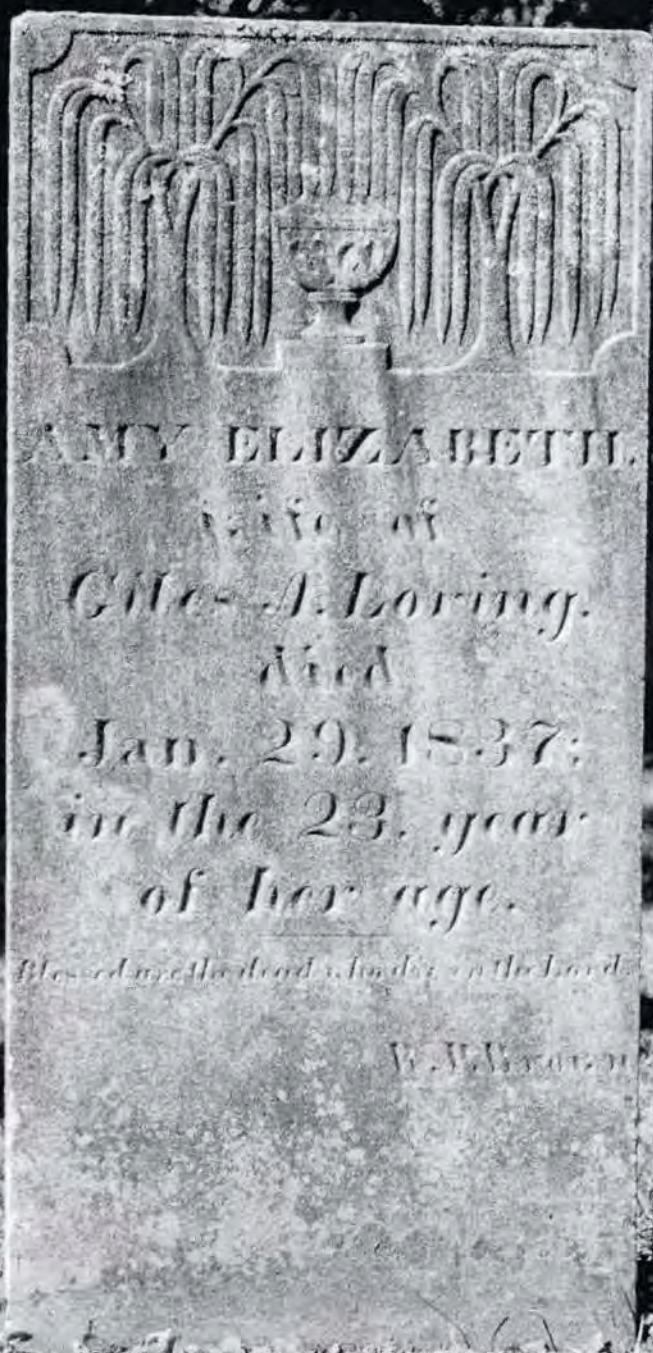 AMY ELIZABETH,
wife of
Giles A. Loring.
died
Jan. 29. 1837;
in the 23. year
of her age.
Blessed are the dead who die in the Lord.
Brown